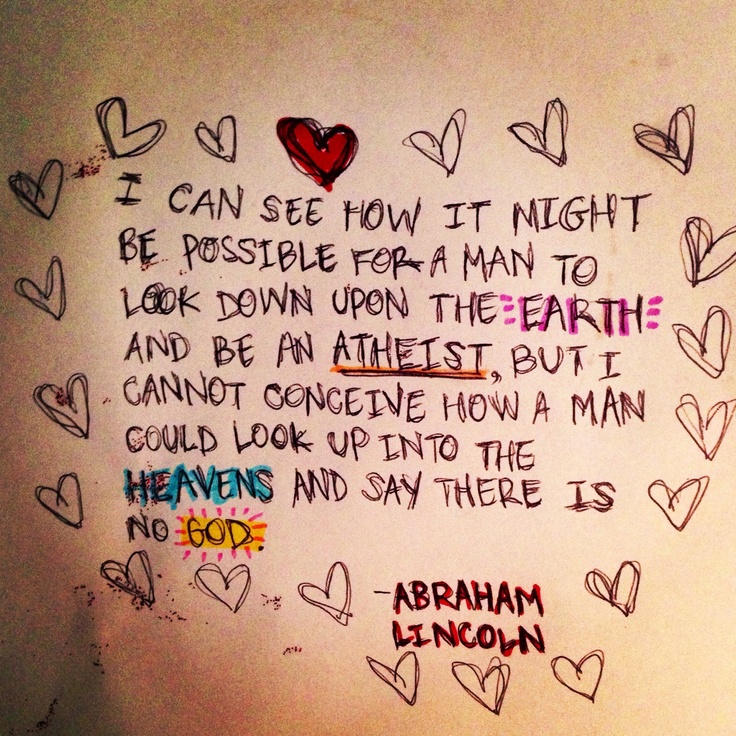 I CAN SEE HOW IT MIGHT
BE POSSIBLE FOR A MAN TO
LOOK DOWN UPON THE EARTH
AND BE AN ATHEIST, BUT I
CANNOT CONCEIVE HOW A MAN
COULD LOOK UP INTO THE
HEAVENS AND SAY THERE IS
NO GOD.
-ABRAHAM
LINCOLN